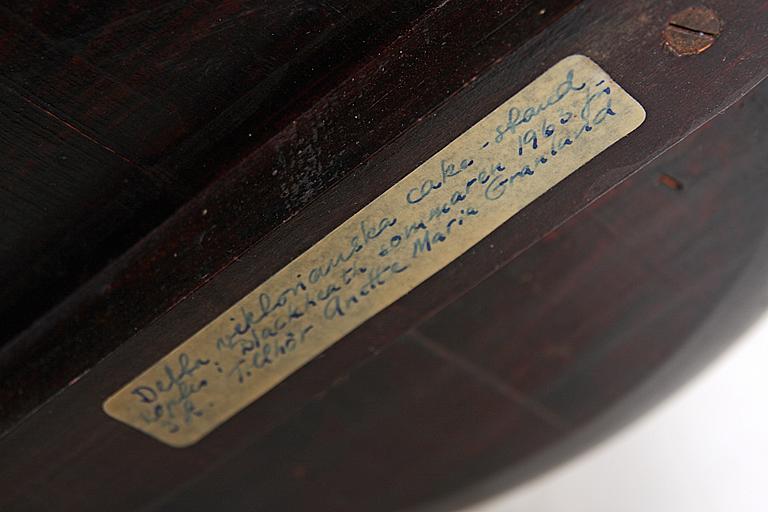 Detta viktorianska cake-stand
köptes i Blackheath sommaren 1963 för
Tillhör Anette Maria Granlund